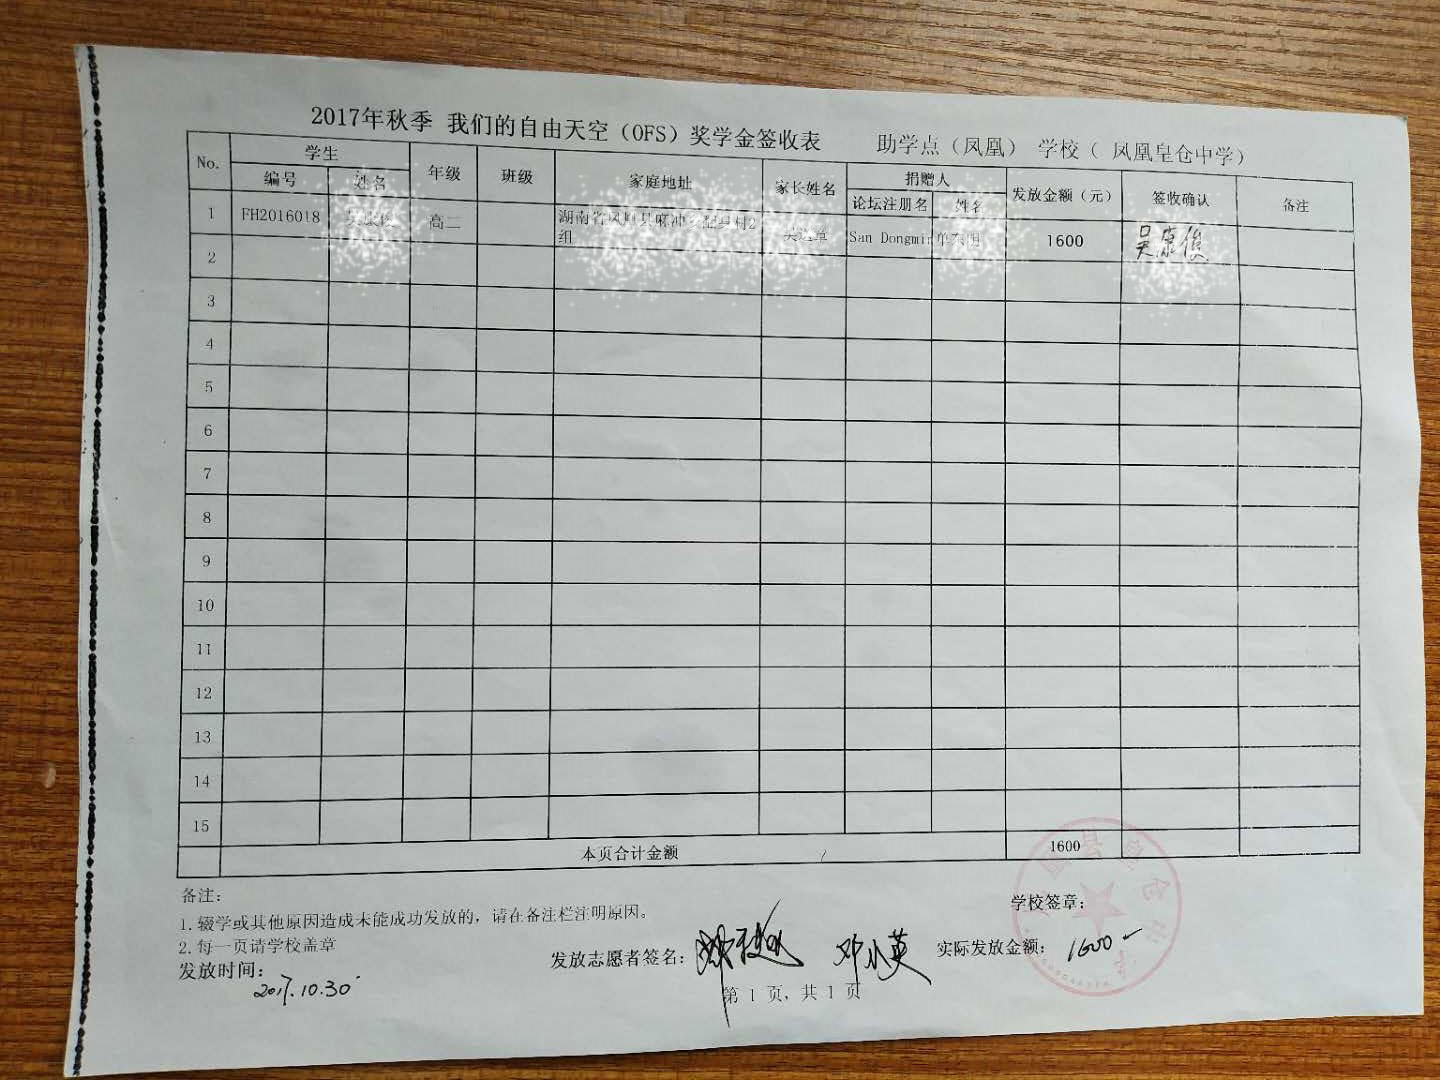 2017年秋季 我们的自由天空（OFS）奖学金签收表 助学点（凤凰） 学校（ 凤凰皇仓中学）
No. 学生 年级 班级 家庭地址 家长姓名 捐赠人 发放金额（元） 签收确认 备注
编号 姓名 论坛注册名 姓名
1 FH2016018 高二 湖南省 2组 San Dongmin 1600
2
3
4
5
6
7
8
9
10
11
12
13
14
15
本页合计金额 1600
备注：
1. 辍学或其他原因造成未能成功发放的，请在备注栏注明原因。
2. 每一页请学校盖章
学校签章：
发放时间： 2017.10.30
发放志愿者签名： 邓小英
实际发放金额： 1600
第 1 页，共 1 页